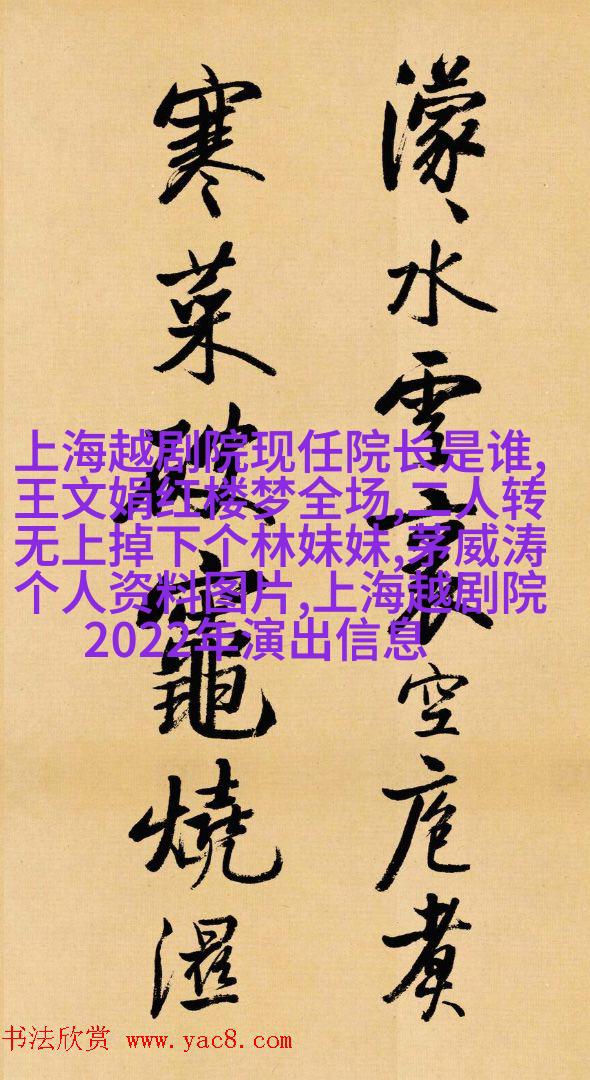 濛〻水雲裏空庖煮
寒菜破竈燒濕
上海越剧院现任院长是谁,
王文娟红楼梦全场,二人转
无上掉下个林妹妹,茅威涛
个人资料图片,上海越剧院
2022年演出信息
书法欣赏 www.yac8.com